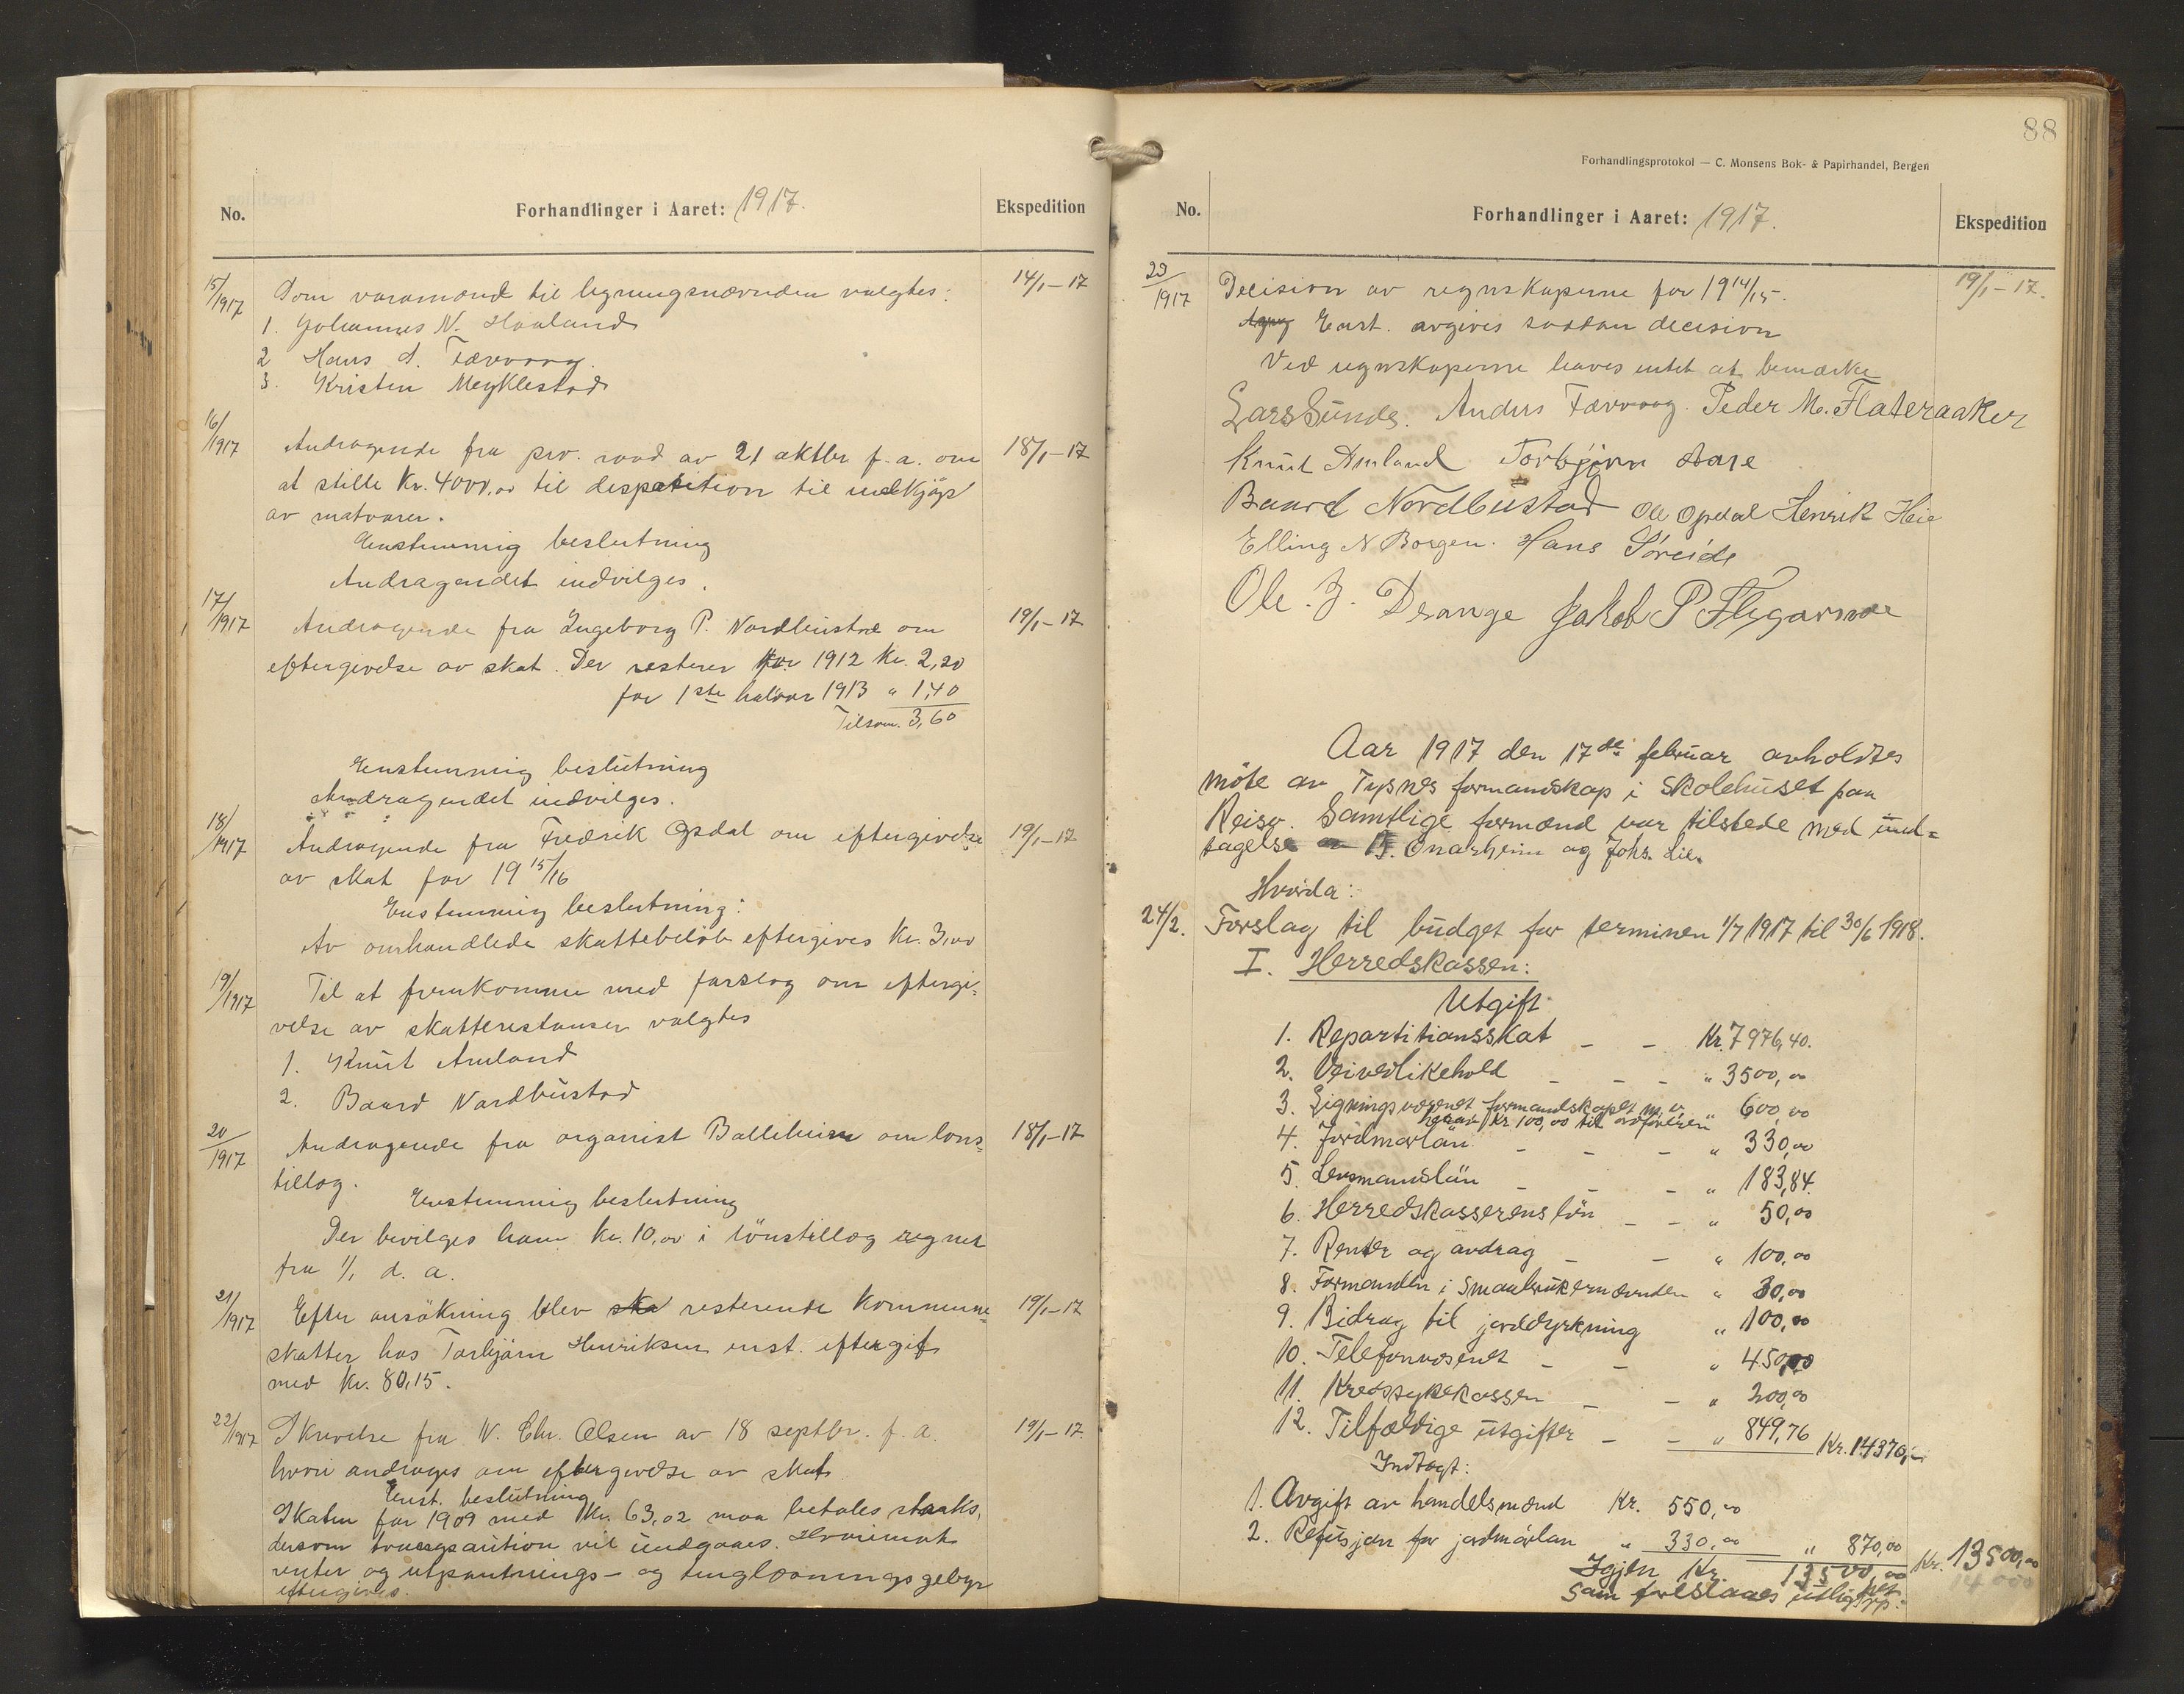 No.
Forhandlinger i Aaret: 1917.
Ekspedition
15/1917
Som varamænd til ligningsnævnden valgtes:
14/1-17
1. Johannes N. Haaland
2 Hans A. Tævraag.
3. Kristen Meyklestad
16/1917
Andragende fra prv. raad av 21 oktbr f.a. om
18/1-17
at stille Kr. 4000,00 til disposition til indkjøp
av matvarer.
Enstemmig beslutning
Andragendet indvilges.
17/1917
Andragende fra Ingeborg P. Nordbustad om
19/1-17
eftergivelse av skat. Der resterer for 1912 Kr. 2,20
for 1ste halvaar 1913 " 1,40
Tilsam. 3,60
Enstemmig beslutning
Andragendet indvilges.
18/1917
Andragende fra Fredrik Opdal om eftergivelse
19/1-17
av skat for 1915/16
Enstemmig beslutning:
Av omhandlede skattebeløb eftergives Kr. 3,00
19/1917
Til at fremkomme med forslag om eftergi-
velse av skatterestanser valgtes
1. Knut Amland
2. Baard Nordbustad
20/1917
Andragende fra organist Balleheim om løns-
18/1-17
tillæg.
Enstemmig beslutning
Der bevilges ham Kr. 10,00 i lønstillæg regnet
fra 1/1 d. a.
21/1917
Efter ansökning blev ska resterende kommune-
19/1-17
skatter hos Torbjørn Henriksen enst. eftergit
med Kr. 80,15.
22/1917
Skrivelse fra W. Chr. Olsen av 18 septbr. f. a.
19/1-17.
hvori andrages om eftergivelse av skat.
Enst. beslutning
Skaten for 1909 med Kr. 63,02 maa betales straks,
dersom tvangsauktion vil undgaaes. Hvorimot
renter og utpantnings- og tinglæsningsgebyr
eftergives.
88
Forhandlingsprotokol — C. Monsens Bok- & Papirhandel, Bergen
No.
Forhandlinger i Aaret: 1917.
Ekspedition
23/1917
Decision av regnskaperne for 1914/15.
19/1-17.
Enst. avgives saadan decision
Ved regnskaperne haves intet at bemærke
Lars Sunde. Anders Tævraag. Peder M. Flateraaker
Knut Amland Torbjørn Aase
Baard Nordbustad Ole Opdal Henrik Heie
Elling N Borgen. Hans Søreide
Ole. J. Drange Jakob P Flygarnæ
Aar 1917 den 17de februar avholdtes
møte av Tysnes formandskap i skolehuset paa
Reisø. Samtlige formænd var tilstede med und-
tagelse av B. Onarheim og Johs. Lie.
Hvorda:
24/2.
Forslag til budget for terminen 1/7 1917 til 30/6 1918.
I. Herredskassen:
Utgift
1. Repartitionsskat - - Kr. 7976,40.
2. Veivedlikehold - - - " 3500,00
3. Ligningsvæsenet formandskapet m. v. " 600,00
herav Kr 100,00 til ordføreren
4. Jordmorløn - - - " 330,00
5. Lensmandsløn - - - " 183,84.
6. Herredskasserens løn - - " 50,00
7. Renter og avdrag - - " 100,00
8. Formanden i Smaabrukernævnden " 30,00
9. Bidrag til jorddyrkning " 100,00
10. Telefonvæsenet - - " 450,00
11. Kredssykekassen - - " 200,00
12. Tilfældige utgifter - - " 849,76 Kr. 14370,-
Indtægt:
1. Avgift av handelsmænd Kr. 550,00
2. Refusjon for jordmorløn " 330,00 " 870,00
Igjen Kr. 13500,00 Kr. 13500,00
14 000
som foreslaaes utlignet